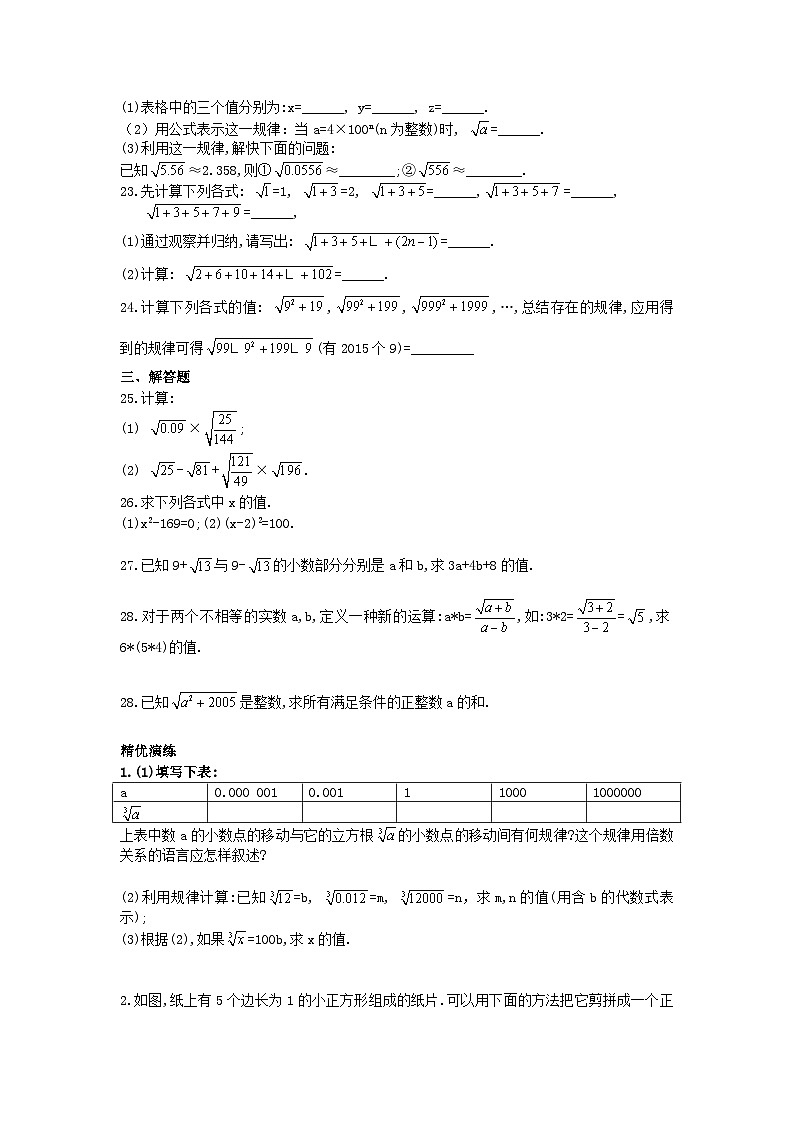 (1)表格中的三个值分别为:x=______, y=______, z=______.
（2）用公式表示这一规律：当 a=4×100ⁿ(n 为整数)时, √a=______.
(3)利用这一规律,解快下面的问题:
已知√5.56≈2.358,则①√0.0556≈________;②√556≈________.
23.先计算下列各式: √1=1, √(1+3)=2, √(1+3+5)=______,√(1+3+5+7)=______,
√(1+3+5+7+9)=______,
(1)通过观察并归纳,请写出: √(1+3+5+∟ +(2n−1))=______.
(2)计算: √(2+6+10+14+∟ +102)=______.
24.计算下列各式的值: √(9²+19),√(99²+199),√(999²+1999),…,总结存在的规律,应用得
到的规律可得√(99∟ 9²+199∟ 9)(有 2015 个 9)=_________
三、解答题
25.计算:
(1) √0.09×√(25/144);
(2) √25-√81+√(121/49)×√196.
26.求下列各式中 x 的值.
(1)x²-169=0;(2)(x-2)²=100.
27.已知 9+√13与 9-√13的小数部分分别是 a 和 b,求 3a+4b+8 的值.
28.对于两个不相等的实数 a,b,定义一种新的运算:a*b=√(a+b)/(a−b),如:3*2=√(3+2)/(3−2)=√5,求
6*(5*4)的值.
28.已知√(a²+2005)是整数,求所有满足条件的正整数 a 的和.
精优演练
1.(1)填写下表:
a 0.000 001 0.001 1 1000 1000000
∛a
上表中数 a 的小数点的移动与它的立方根∛a的小数点的移动间有何规律?这个规律用倍数
关系的语言应怎样叙述?
(2)利用规律计算:已知∛12=b, ∛0.012=m, ∛12000=n, 求 m,n 的值(用含 b 的代数式表
示);
(3)根据(2),如果∛x=100b,求 x 的值.
2.如图,纸上有 5 个边长为 1 的小正方形组成的纸片.可以用下面的方法把它剪拼成一个正